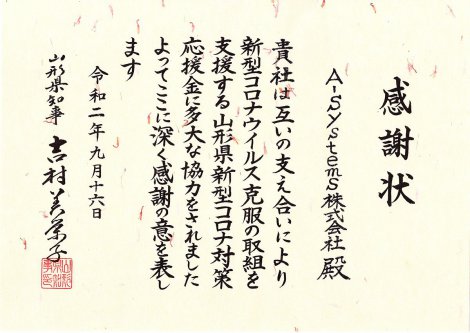 感謝状
A-Systems株式会社 殿
貴社は互いの支え合いにより
新型コロナウイルス克服の取組を
支援する山形県新型コロナ対策
応援金に多大な協力をされました
よってここに深く感謝の意を表し
ます
令和二年九月十六日
山形県知事 吉村美栄子